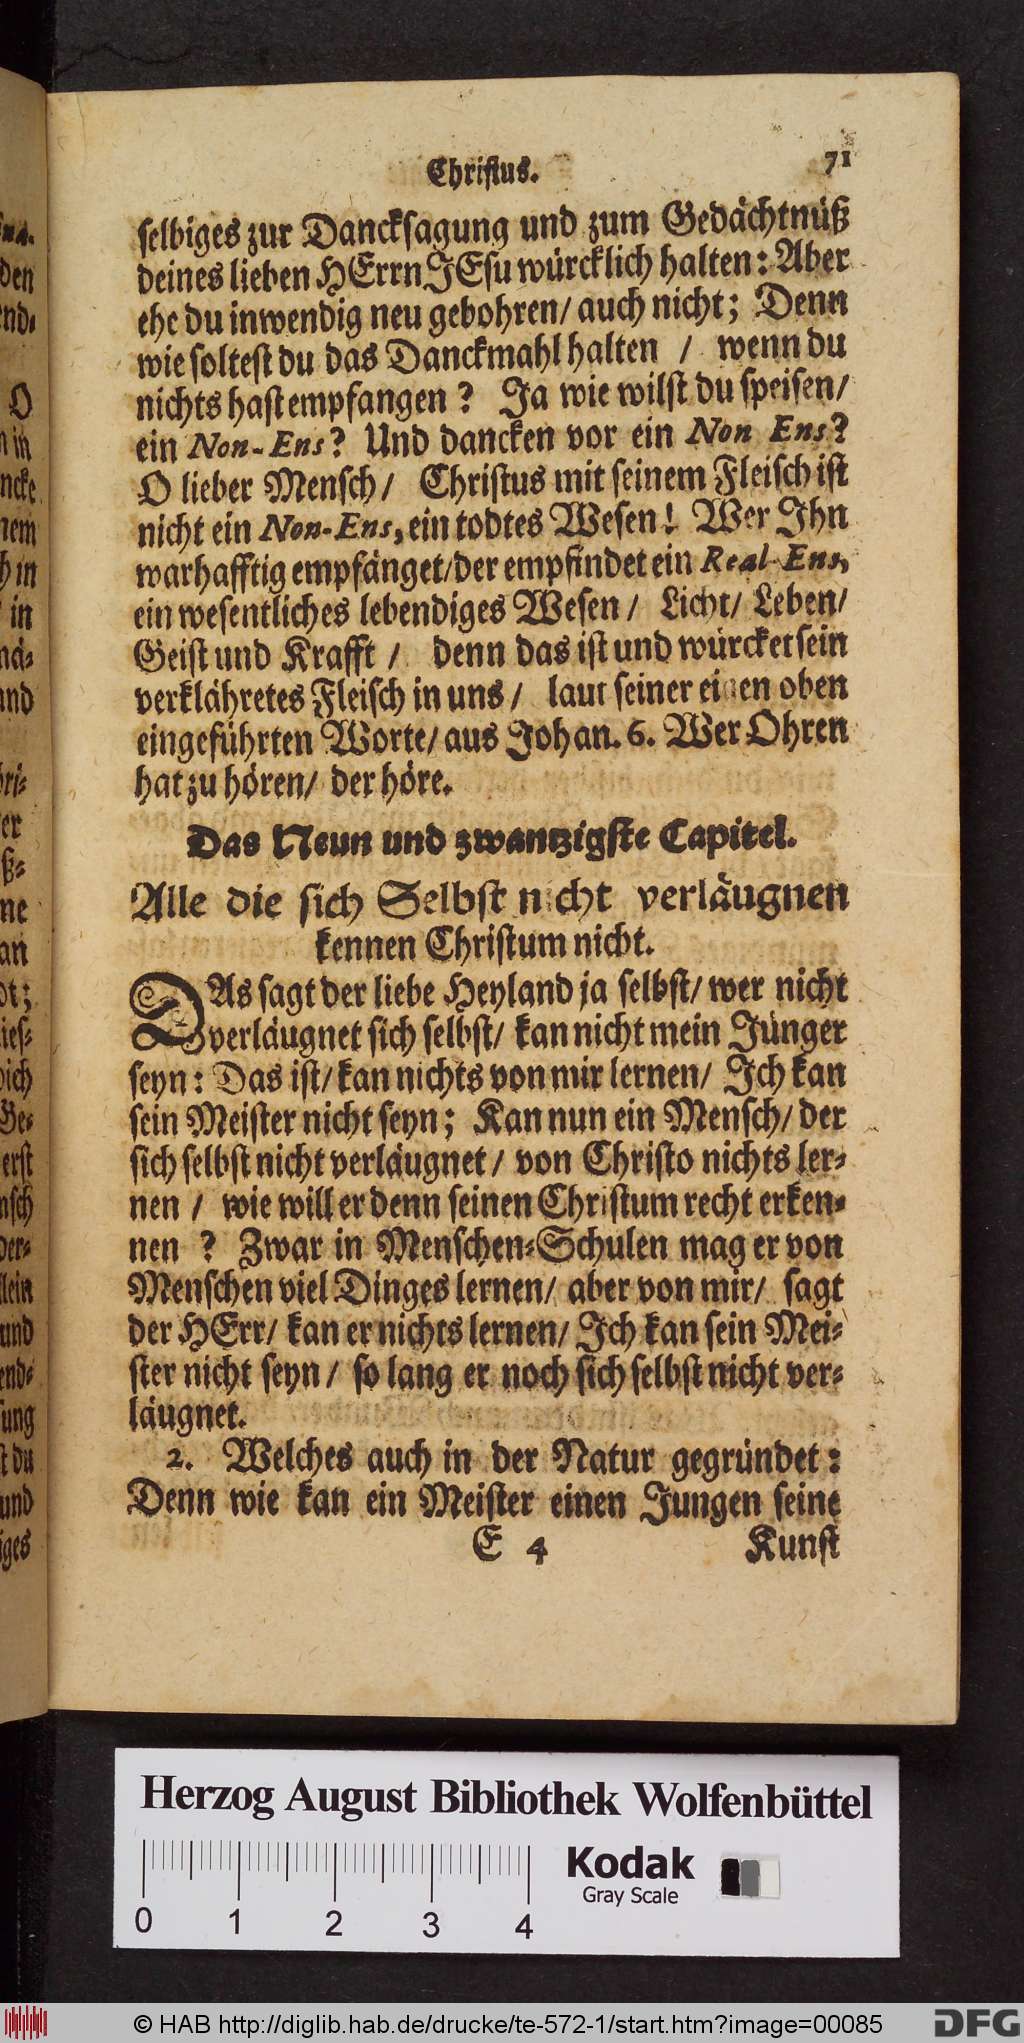 Christus.
71
selbiges zur Dancksagung und zum Gedächtnüß
deines lieben HErrn JEsu würcklich halten: Aber
ehe du inwendig neu gebohren/ auch nicht; Denn
wie soltest du das Danckmahl halten / wenn du
nichts hast empfangen? Ja wie wilst du speisen/
ein Non-Ens? Und dancken vor ein Non Ens?
O lieber Mensch/ Christus mit seinem Fleisch ist
nicht ein Non-Ens, ein todtes Wesen! Wer Ihn
warhafftig empfänget/der empfindet ein Real-Ens,
ein wesentliches lebendiges Wesen/ Licht/ Leben/
Geist und Krafft / denn das ist und würcket sein
verklähretes Fleisch in uns/ laut seiner eigen oben
eingeführten Worte/ aus Johan. 6. Wer Ohren
hat zu hören/ der höre.
Das Neun und zwantzigste Capitel.
Alle die sich Selbst nicht verläugnen
kennen Christum nicht.
DAs sagt der liebe Heyland ja selbst/ wer nicht
verläugnet sich selbst/ kan nicht mein Jünger
seyn: Das ist/ kan nichts von mir lernen/ Ich kan
sein Meister nicht seyn; Kan nun ein Mensch/ der
sich selbst nicht verläugnet/ von Christo nichts ler-
nen / wie will er denn seinen Christum recht erken-
nen ? Zwar in Menschen-Schulen mag er von
Menschen viel Dinges lernen/ aber von mir/ sagt
der HErr/ kan er nichts lernen/ Ich kan sein Mei-
ster nicht seyn / so lang er noch sich selbst nicht ver-
läugnet.
2. Welches auch in der Natur gegründet:
Denn wie kan ein Meister einen Jungen seine
E 4
Kunst
Herzog August Bibliothek Wolfenbüttel
Kodak
Gray Scale
0 1 2 3 4
© HAB http://diglib.hab.de/drucke/te-572-1/start.htm?image=00085
DFG